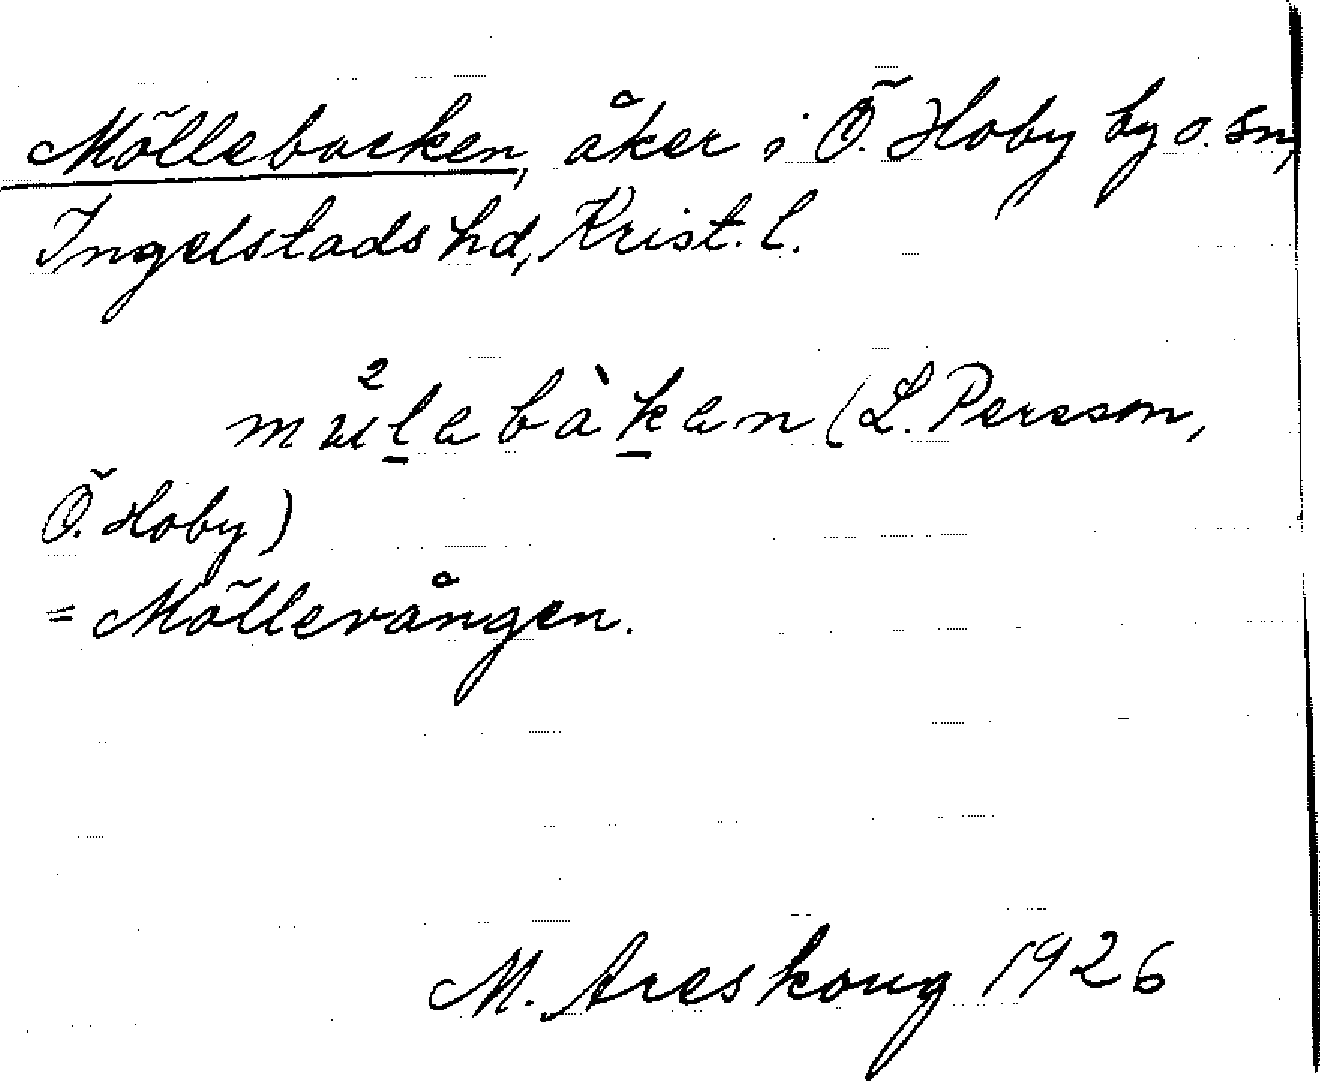 Möllebacken, åker i Ö. Hoby by o. sn,
Ingelstads hd, Krist. l.
(L. Persson,
Ö. Hoby)
= Möllevången.
M. Areskoug 1926